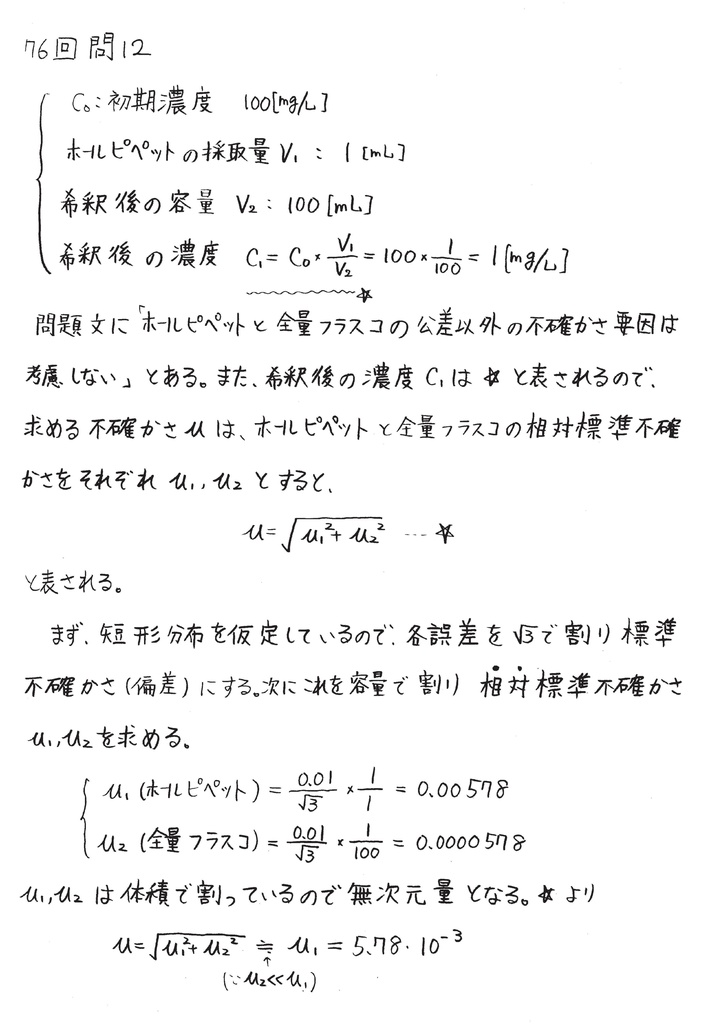 76回 問12
C₀:初期濃度 100[mg/L]
ホールピペットの採取量 V₁ : 1 [mL]
希釈後の容量 V₂ : 100 [mL]
希釈後の濃度 C₁ = C₀ × V₁/V₂ = 100 × 1/100 = 1 [mg/L]
☆
問題文に「ホールピペットと全量フラスコの公差以外の不確かさ要因は
考慮しない」とある。また、希釈後の濃度 C₁ は ☆ と表されるので、
求める不確かさ u は、ホールピペットと全量フラスコの相対標準不確
かさをそれぞれ u₁, u₂ とすると、
u = √(u₁² + u₂²) … ☆
と表される。
まず、短形分布を仮定しているので、各誤差を √3 で割り 標準
不確かさ(偏差)にする。次にこれを容量で割り 相対標準不確かさ
u₁, u₂ を求める。
u₁ (ホールピペット) = 0.01/√3 × 1/1 = 0.00578
u₂ (全量フラスコ) = 0.01/√3 × 1/100 = 0.0000578
u₁, u₂ は体積で割っているので無次元量となる。☆より
u = √(u₁² + u₂²) ≒ u₁ = 5.78・10⁻³
↑
(∵ u₂ << u₁)